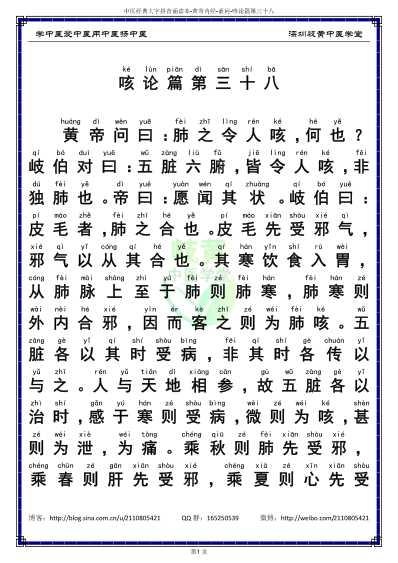 中医经典大字拼音诵读本-黄帝内经-素问-咳论篇第三十八
学中医爱中医用中医扬中医 深圳岐黄中医学堂
ké lùn piān dì sān shí bā
咳论篇第三十八
huáng dì wèn yuē fèi zhī lìng rén ké hé yě
黄帝问曰：肺之令人咳，何也？
qí bó duì yuē wǔ zàng liù fǔ jiē lìng rén ké fēi
岐伯对曰：五脏六腑，皆令人咳，非
dú fèi yě dì yuē yuàn wén qí zhuàng qí bó yuē
独肺也。帝曰：愿闻其状。岐伯曰：
pí máo zhě fèi zhī hé yě pí máo xiān shòu xié qì
皮毛者，肺之合也。皮毛先受邪气，
xié qì yǐ cóng qí hé yě qí hán yǐn shí rù wèi
邪气以从其合也。其寒饮食入胃，
cóng fèi mài shàng zhì yú fèi zé fèi hán fèi hán zé
从肺脉上至于肺则肺寒，肺寒则
wài nèi hé xié yīn ér kè zhī zé wéi fèi ké wǔ
外内合邪，因而客之则为肺咳。五
zàng gè yǐ qí shí shòu bìng fēi qí shí gè chuán yǐ
脏各以其时受病，非其时各传以
yǔ zhī rén yǔ tiān dì xiāng cān gù wǔ zàng gè yǐ
与之。人与天地相参，故五脏各以
zhì shí gǎn yú hán zé shòu bìng wēi zé wéi ké shèn
治时，感于寒则受病，微则为咳，甚
zé wéi xiè wéi tòng chéng qiū zé fèi xiān shòu xié
则为泄，为痛。乘秋则肺先受邪，
chéng chūn zé gān xiān shòu xié chéng xià zé xīn xiān shòu
乘春则肝先受邪，乘夏则心先受
博客：http://blog.sina.com.cn/u/2110805421 QQ群：165250539 微博：http://weibo.com/2110805421
第1页